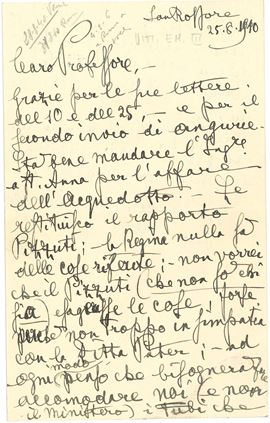 San Rossore
25.6.1910
VITT. EM. III
Caro Professore, -
Grazie per le sue lettere
del 10 e del 25, - e per il
secondo invio di
mandare l'Ing.re
a S. Anna per l'affare
dell'Acquedotto. - Le
restituisco il rapporto
Pizzuti; - la Regina nulla sa
delle cose riferite; - non vorrei
che il Pizzuti (che non so chi
sia) le cose forse
perché non troppo in simpatia
con la Ditta Pater; - ad
ogni modo penso che bisognerà
accomodare noi (e non
il Ministero) i Tubi che